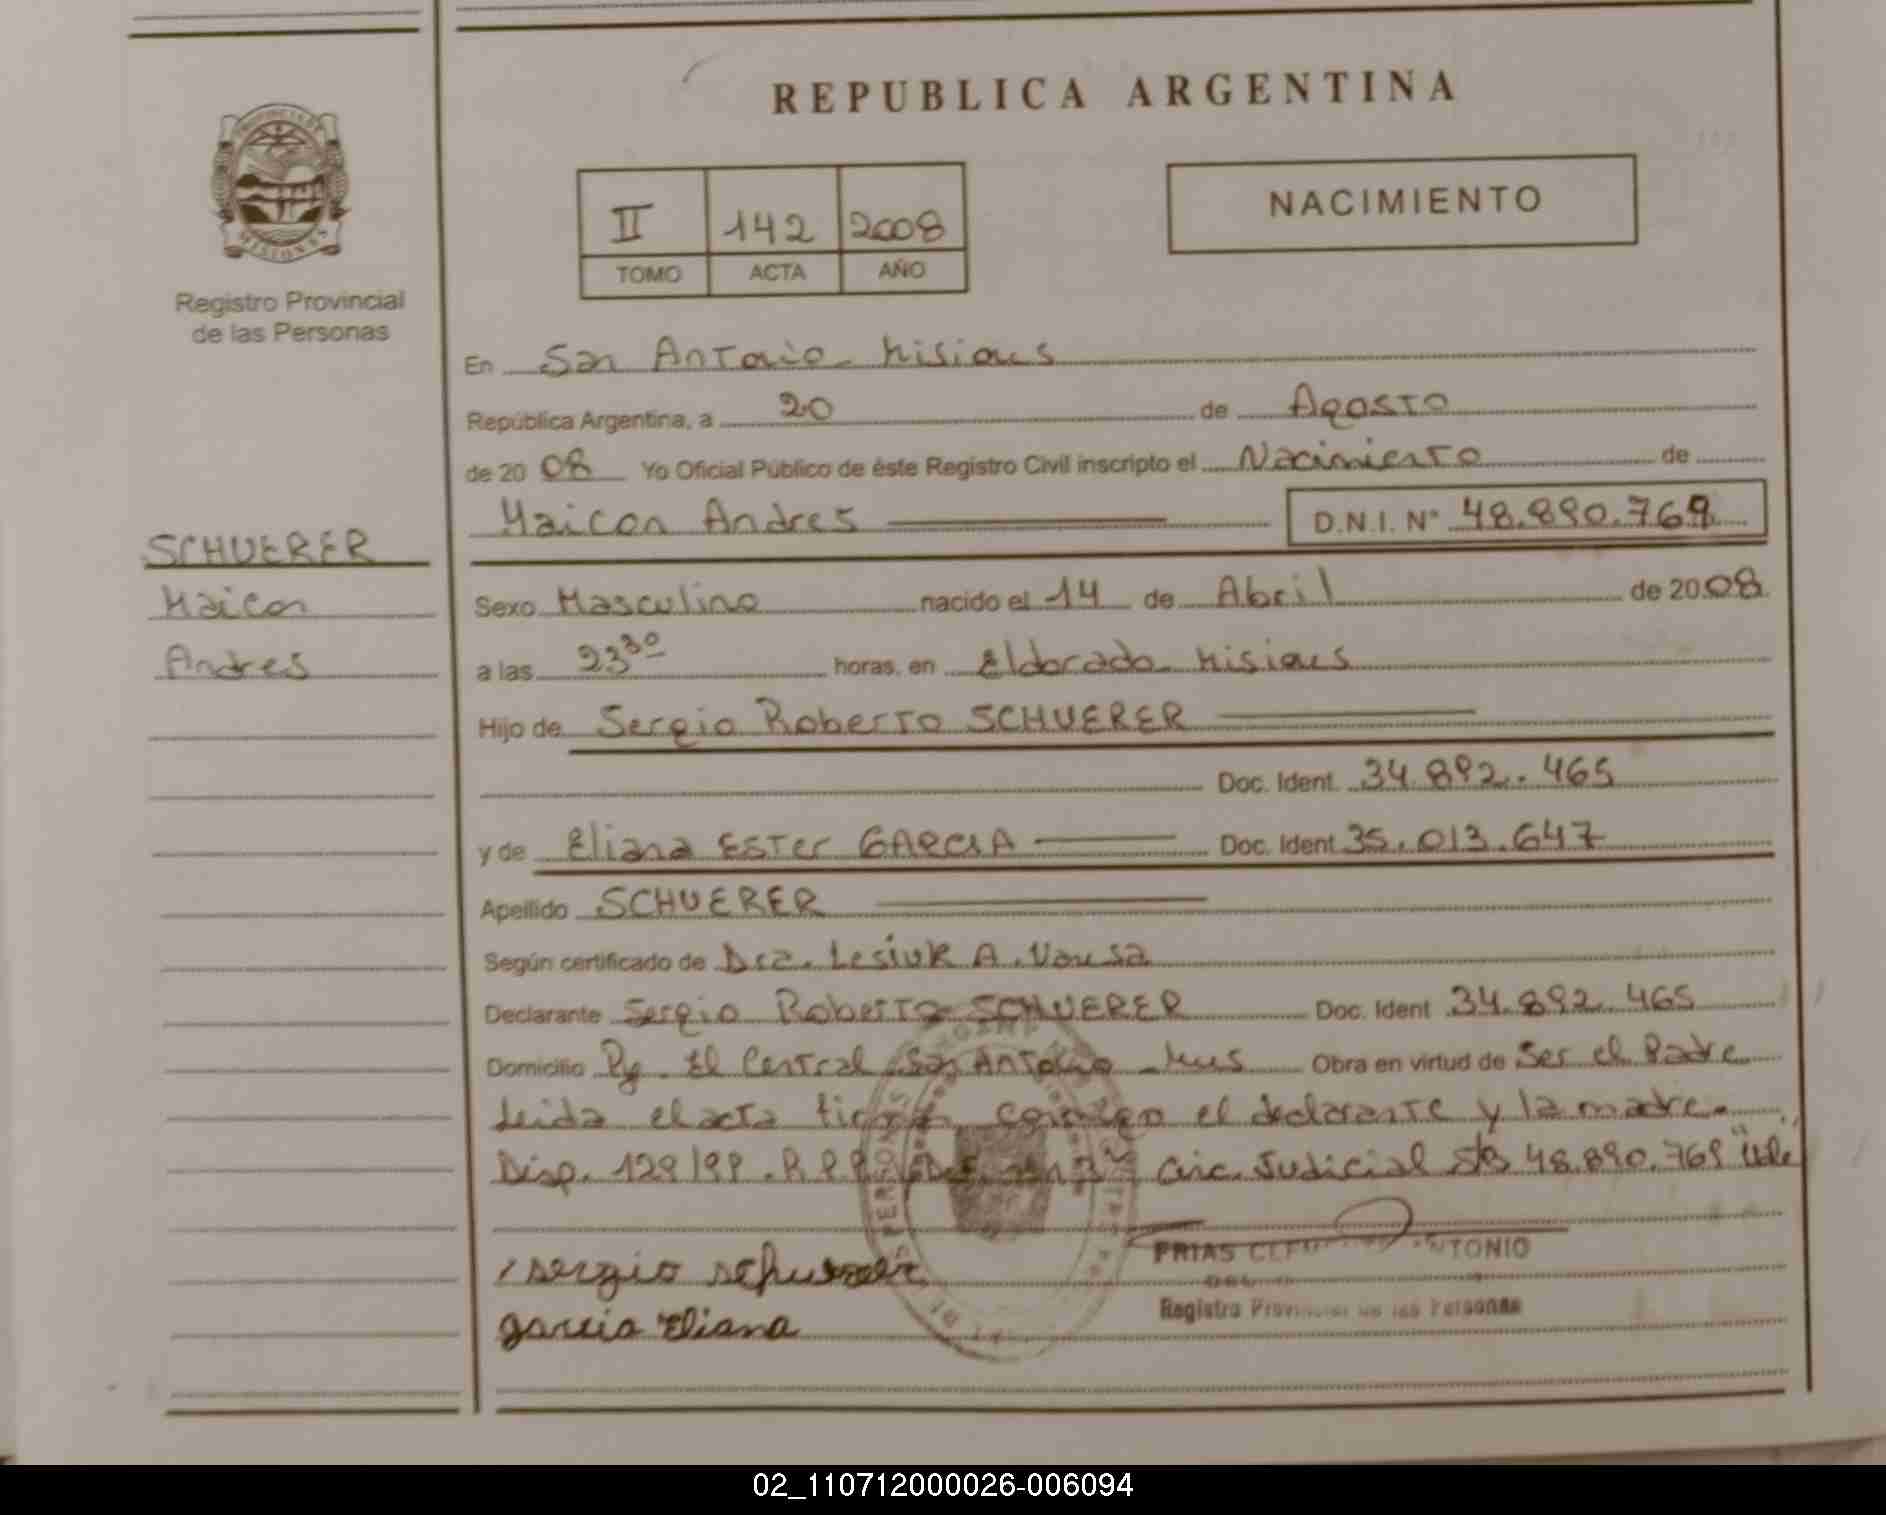 REPUBLICA ARGENTINA
PROVINCIA DE
MISIONES
Registro Provincial
de las Personas
II 142 2008
TOMO ACTA AÑO
NACIMIENTO
En San Antonio Misiones
República Argentina, a 20 de Agosto
de 2008 Yo Oficial Público de éste Registro Civil inscripto el Nacimiento de
Maicon Andres D.N.I. N° 48.890.769
SCHUERER
Maicon
Andres
Sexo Masculino nacido el 14 de Abril de 2008
a las 23 30 horas, en Eldorado Misiones
Hijo de Sergio Roberto SCHUERER
Doc. Ident. 34.892.465
y de Eliana Ester GARCIA Doc. Ident 35.013.647
Apellido SCHUERER
Según certificado de Dra. Lesiuk A.
Declarante Sergio Roberto SCHUERER Doc. Ident 34.892.465
Domicilio El Central San Antonio Obra en virtud de Ser el Padre
Leida el acta conmigo el declarante y la madre.
Disp. 129/99. Circ. Judicial 48.890.769 "Vale
sergio schuerer
garcia Eliana
FRIAS ANTONIO
Registro Provincial de las Personas
02_110712000026-006094